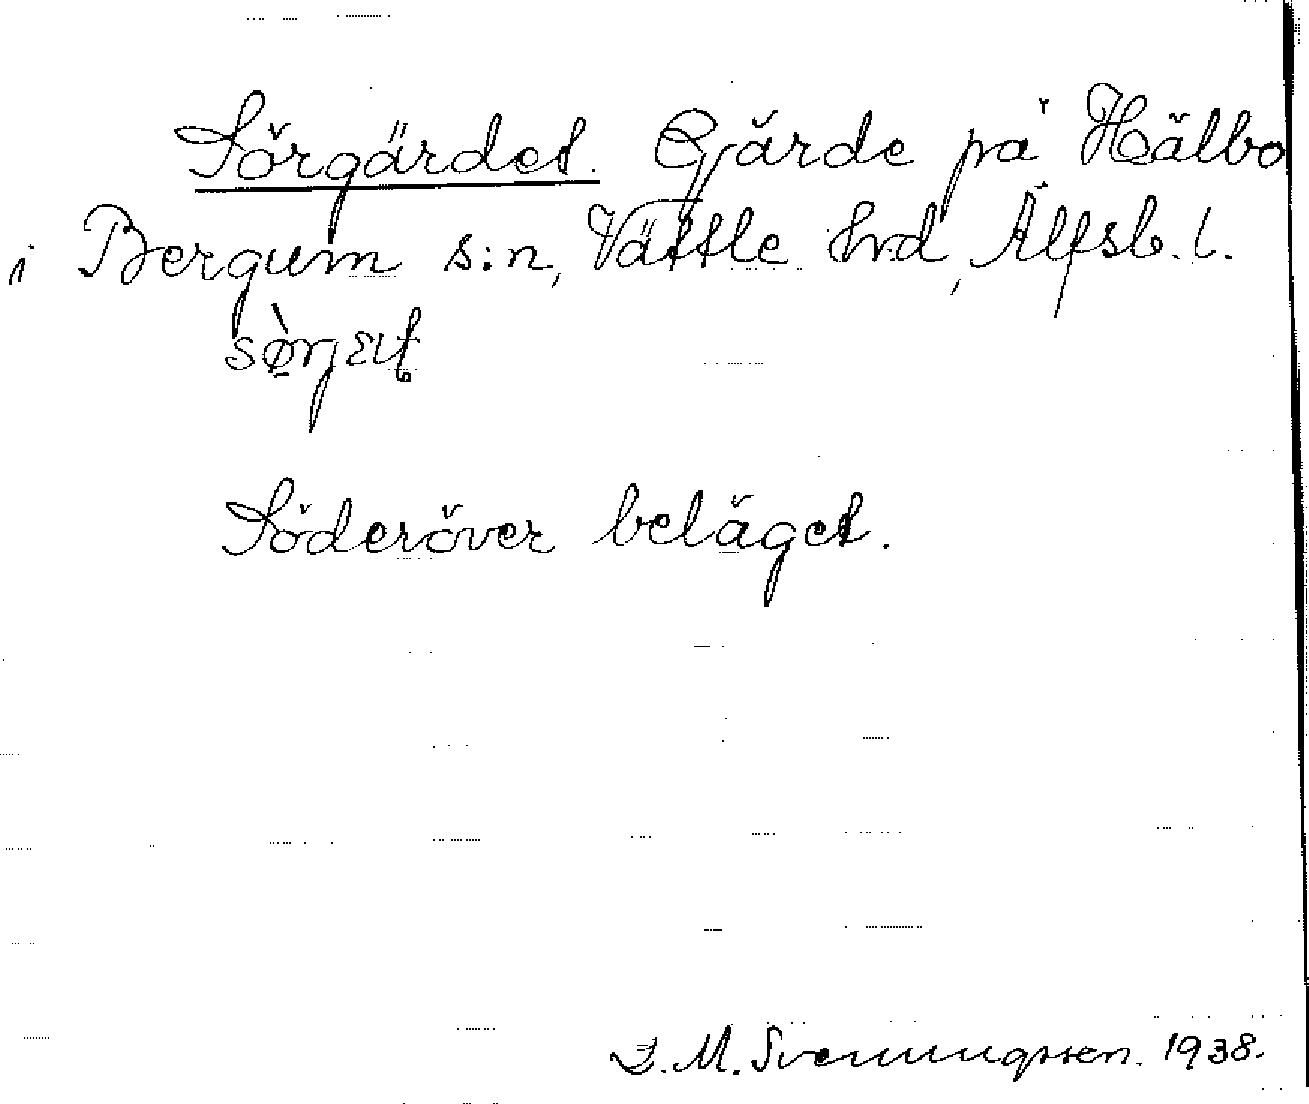 Sörgärdet. Gjärde på Hälbo
i Bergum s:n, Vättle hrd, Älfsb. l.
Söderöver beläget.
D. M. Svenungssen. 1938.